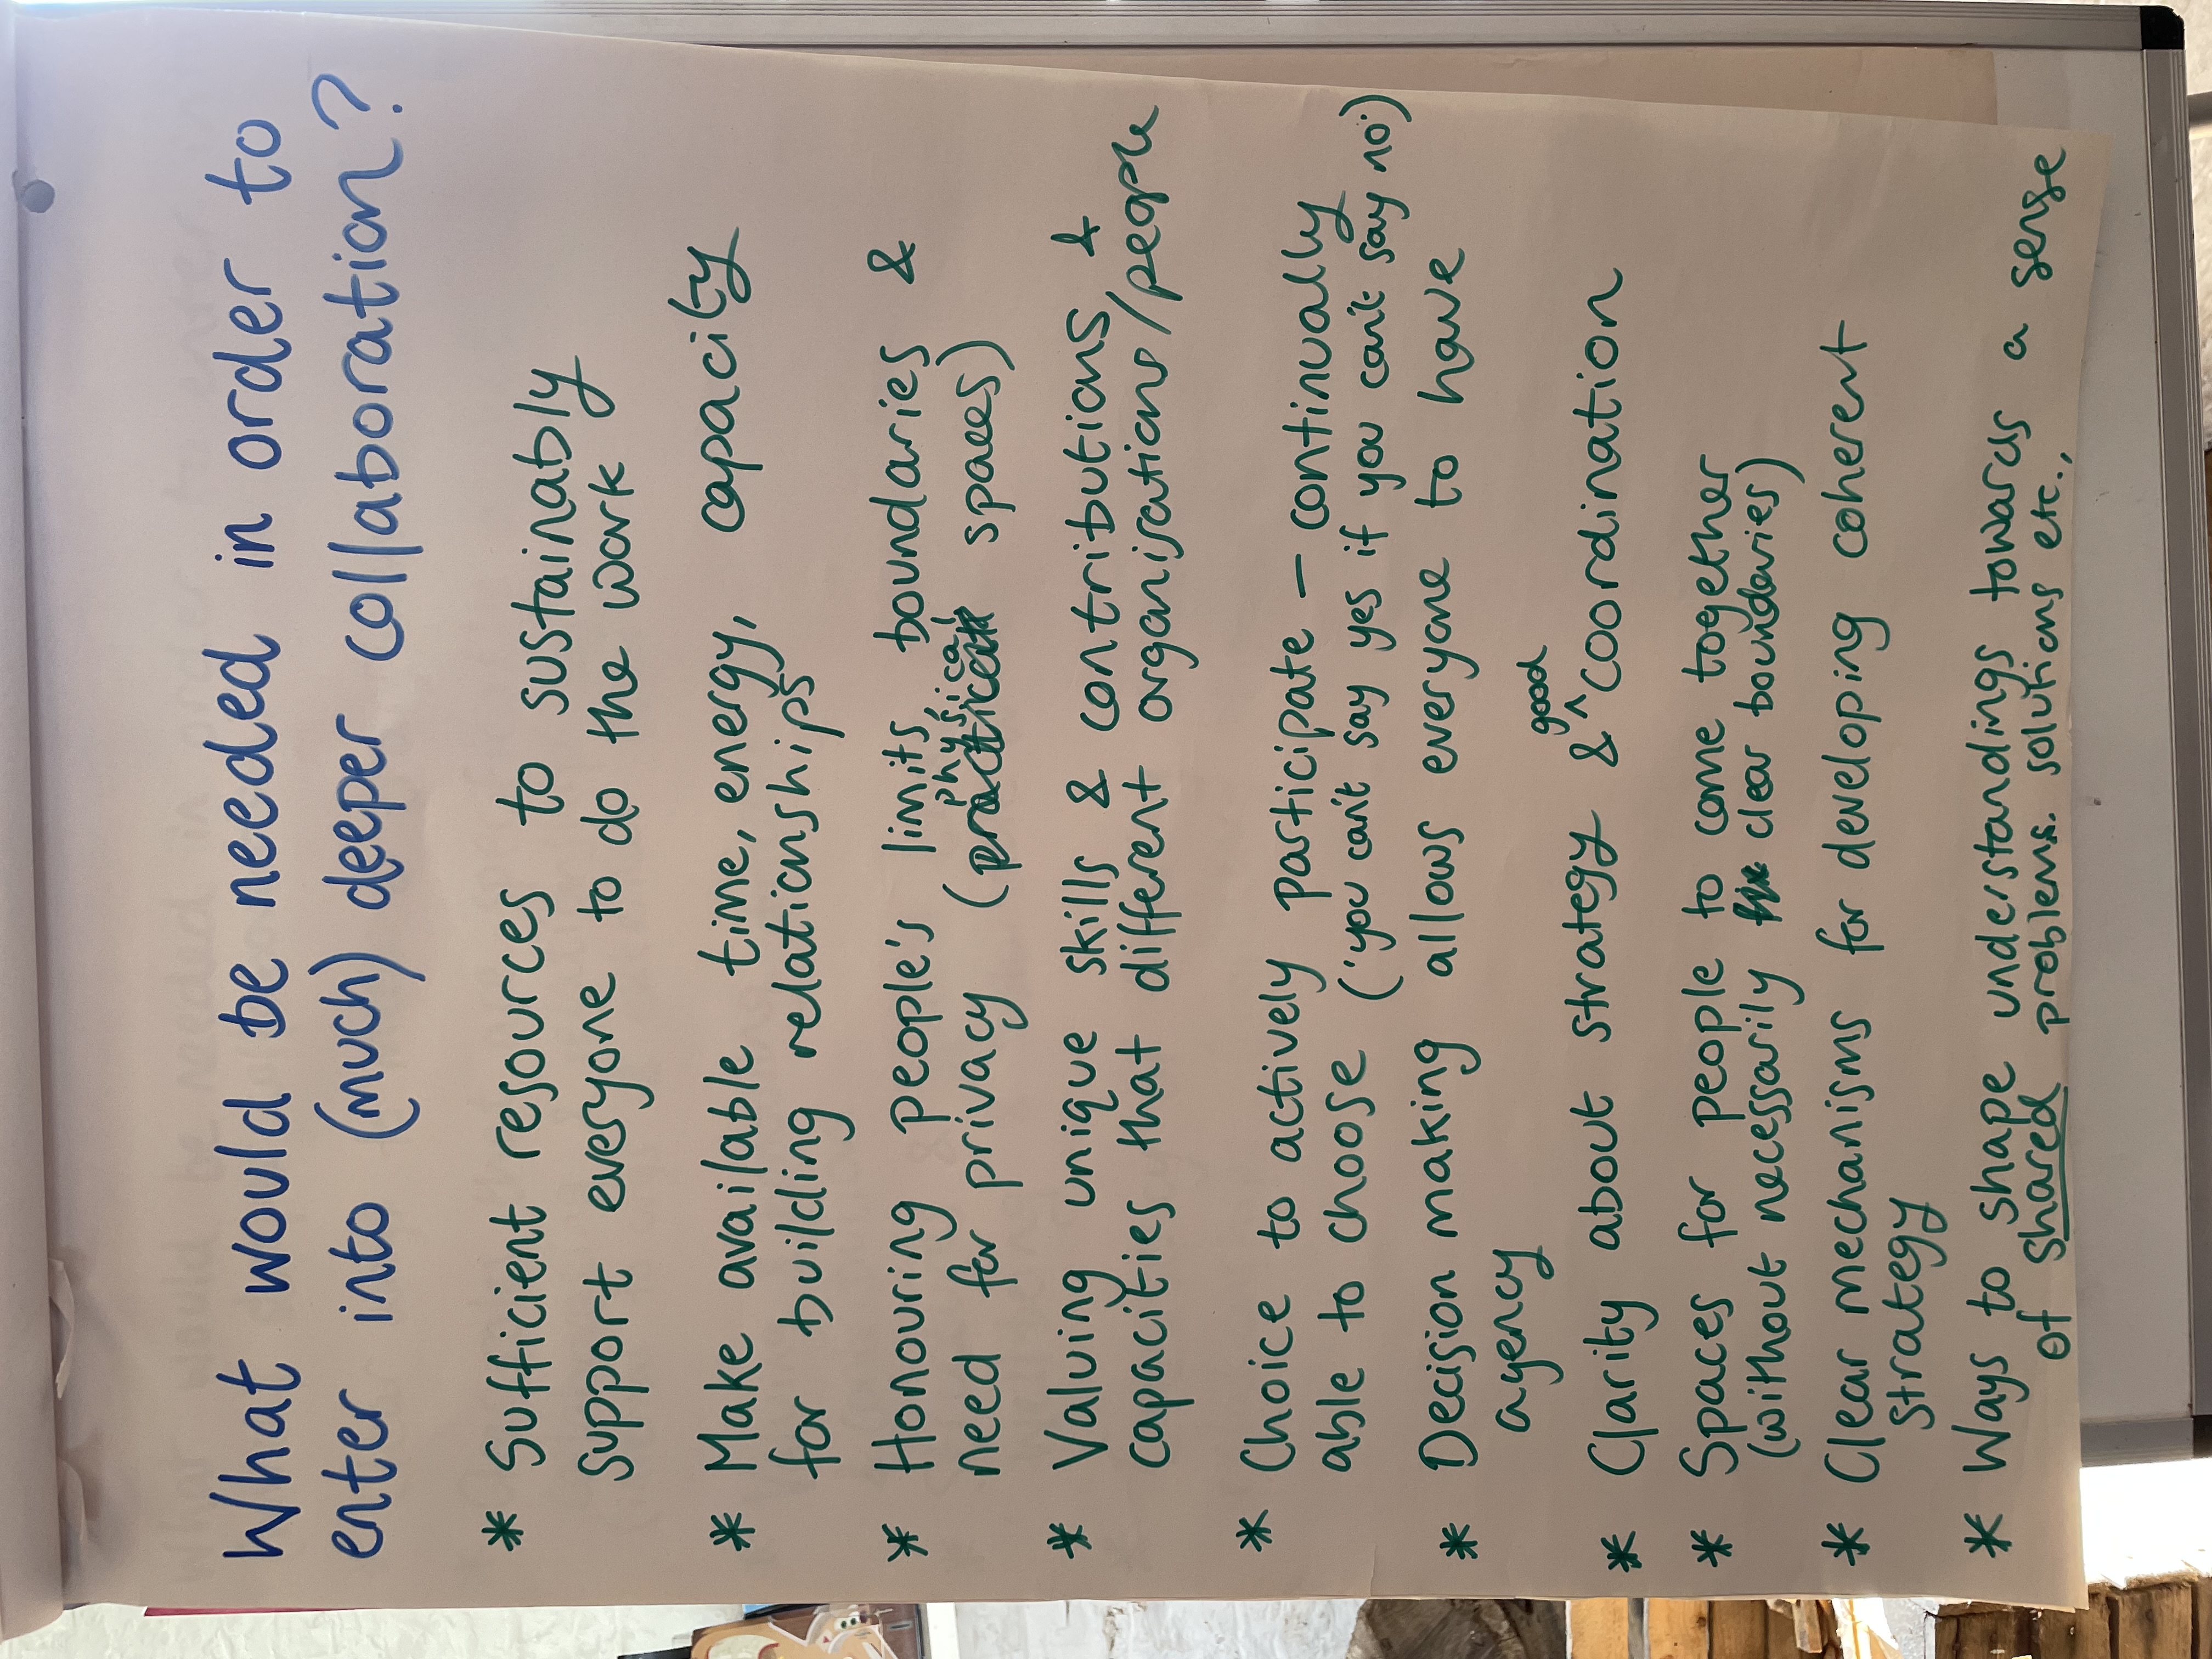 What would be needed in order to
enter into (much) deeper collaboration?
* Sufficient resources to sustainably
support everyone to do the work
* Make available time, energy, capacity
for building relationships
* Honouring people's limits, boundaries &
need for privacy (physical spaces)
* Valuing unique skills & contributions &
capacities that different organisations/people
* Choice to actively participate – continually
able to choose ('you can't say yes if you can't say no')
* Decision making allows everyone to have
agency
* Clarity about strategy & good coordination
* Spaces for people to come together
(without necessarily clear boundaries)
* Clear mechanisms for developing coherent
strategy
* Ways to shape understandings towards a sense
of shared problems. solutions etc.,